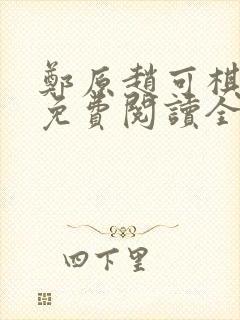 鄭原趙可棋
免費閱讀全
四下里